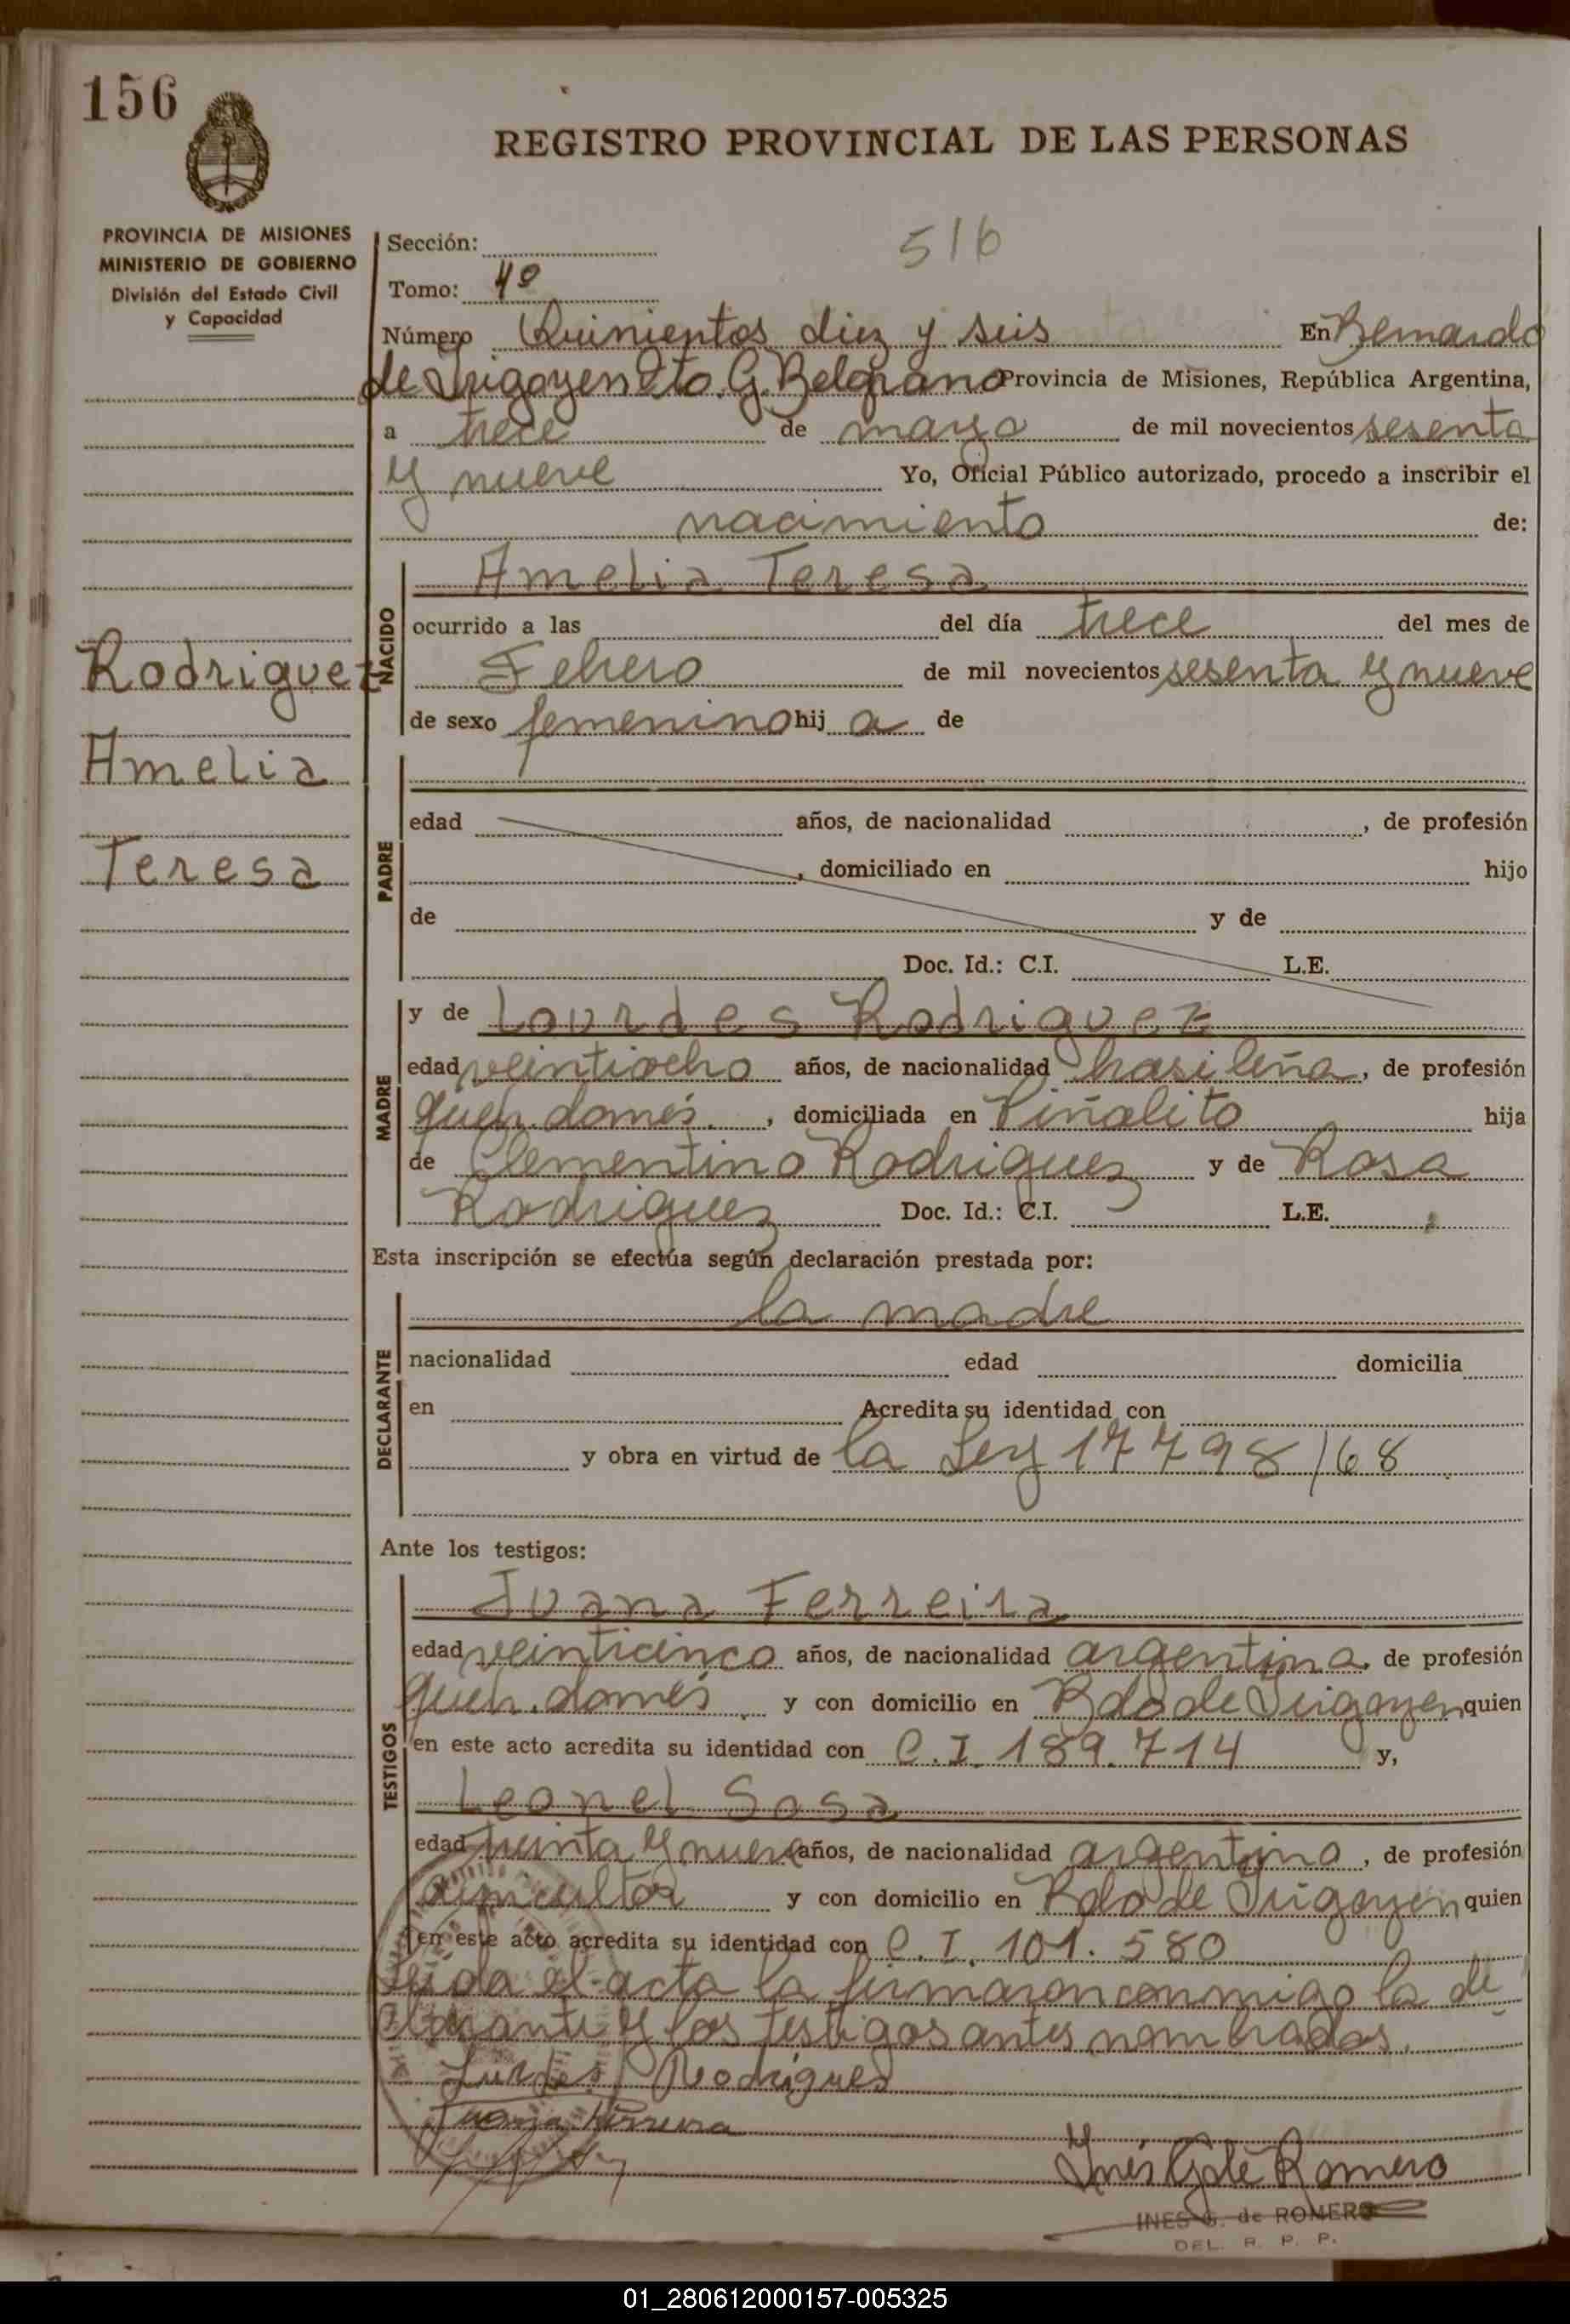 156
REGISTRO PROVINCIAL DE LAS PERSONAS
PROVINCIA DE MISIONES
MINISTERIO DE GOBIERNO
División del Estado Civil
y Capacidad
516
Sección:
Tomo: 4º
Número Quinientos diez y seis En Bernardo
de Irigoyen Dto. G. Belgrano Provincia de Misiones, República Argentina,
a trece de marzo de mil novecientos sesenta
y nueve Yo, Oficial Público autorizado, procedo a inscribir el
nacimiento de:
Rodriguez
Amelia
Teresa
NACIDO
Amelia Teresa
ocurrido a las del día trece del mes de
Febrero de mil novecientos sesenta y nueve
de sexo femenino hij a de
PADRE
edad años, de nacionalidad , de profesión
, domiciliado en hijo
de y de
Doc. Id.: C.I. L.E.
MADRE
y de Lourdes Rodriguez
edad veintiocho años, de nacionalidad brasileña, de profesión
queh. domés. , domiciliada en Piñalito hija
de Clementino Rodriguez y de Rosa
Rodriguez Doc. Id.: C.I. L.E.
Esta inscripción se efectúa según declaración prestada por:
DECLARANTE
la madre
nacionalidad edad domicilia
en Acredita su identidad con
y obra en virtud de la Ley 17798/68
Ante los testigos:
TESTIGOS
Juana Ferreira
edad veinticinco años, de nacionalidad argentina, de profesión
queh. domés. y con domicilio en Bdo de Irigoyen quien
en este acto acredita su identidad con C.I. 189.714 y,
Leonel Sosa
edad treinta y nueve años, de nacionalidad argentino, de profesión
agricultor y con domicilio en Bdo de Irigoyen quien
en este acto acredita su identidad con C.I. 101.580
Leída el acta la firmaron conmigo la de
clarante y los testigos antes nombrados.
Lurdes Rodrigues
Juana Ferreira
Inés G. de Romero
INES G. de ROMERO
DEL. R. P. P.
01_280612000157-005325